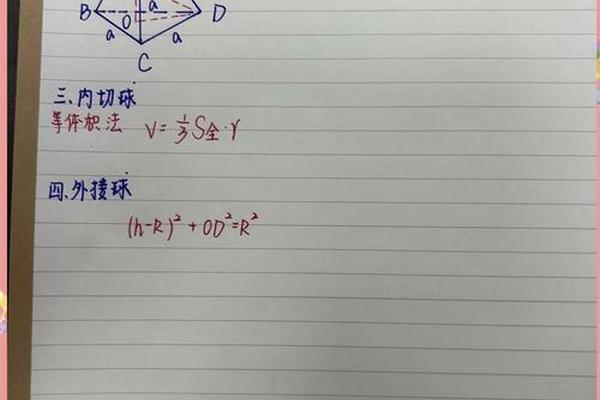 B a D
O
a a
C
三、内切球
等体积法 V=⅓S全·r
四、外接球
(h-R)²+OD²=R²